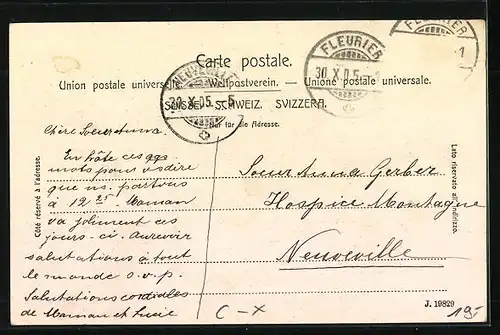 Carte postale.
FLEURIER
30.X.05.
FLEURIER
1
NEUVEVILLE
30.X.05. 5
Union postale universelle. — Weltpostverein. — Unione postale universale.
SUISSE. SCHWEIZ. SVIZZERA.
Nur für die Adresse.
Côté réservé à l'adresse.
Lato riservato all'indirizzo.
Chère Soeur Anna.
En hâte ces qqs
mots pour vs dire
que ns. partons
à 12 25. Maman
va joliment ces
jours-ci. Aurevoir
salutations à tout
le monde s.v.p.
Salutations cordiales
de Maman et Lucie
Soeur Anna Gerber
Hospice Montagne
Neuveville
J. 19829
C-X
19.-